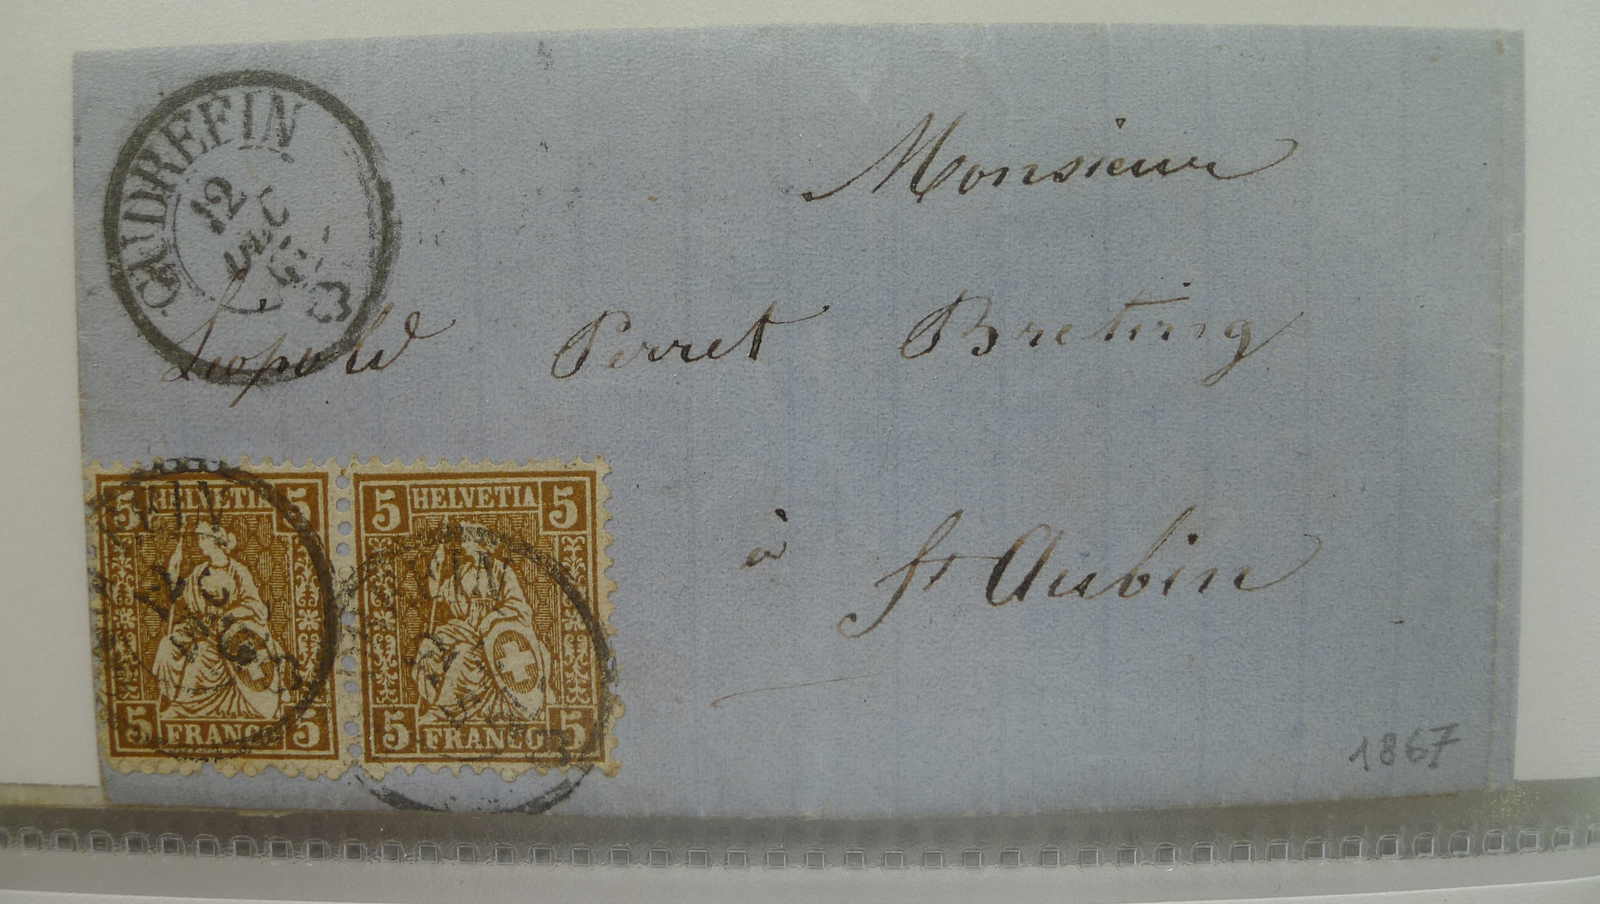 CUDREFIN
12
DEC
Monsieur
Leopold Perret Breting
à St Aubin
5 HELVETIA 5
5 FRANCO 5
5 HELVETIA 5
5 FRANCO 5
1867